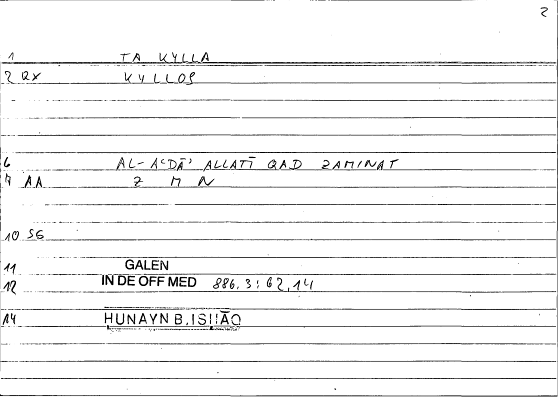 2
1 TA KYLLA
2 QX KYLLOS
6 AL-AʿḌĀʾ ALLATĪ QAD ZAMINAT
7 AA Z M N
10 SG
11 GALEN
12 IN DE OFF MED 886.3; 62,14
14 HUNAYN B. ISḤĀQ